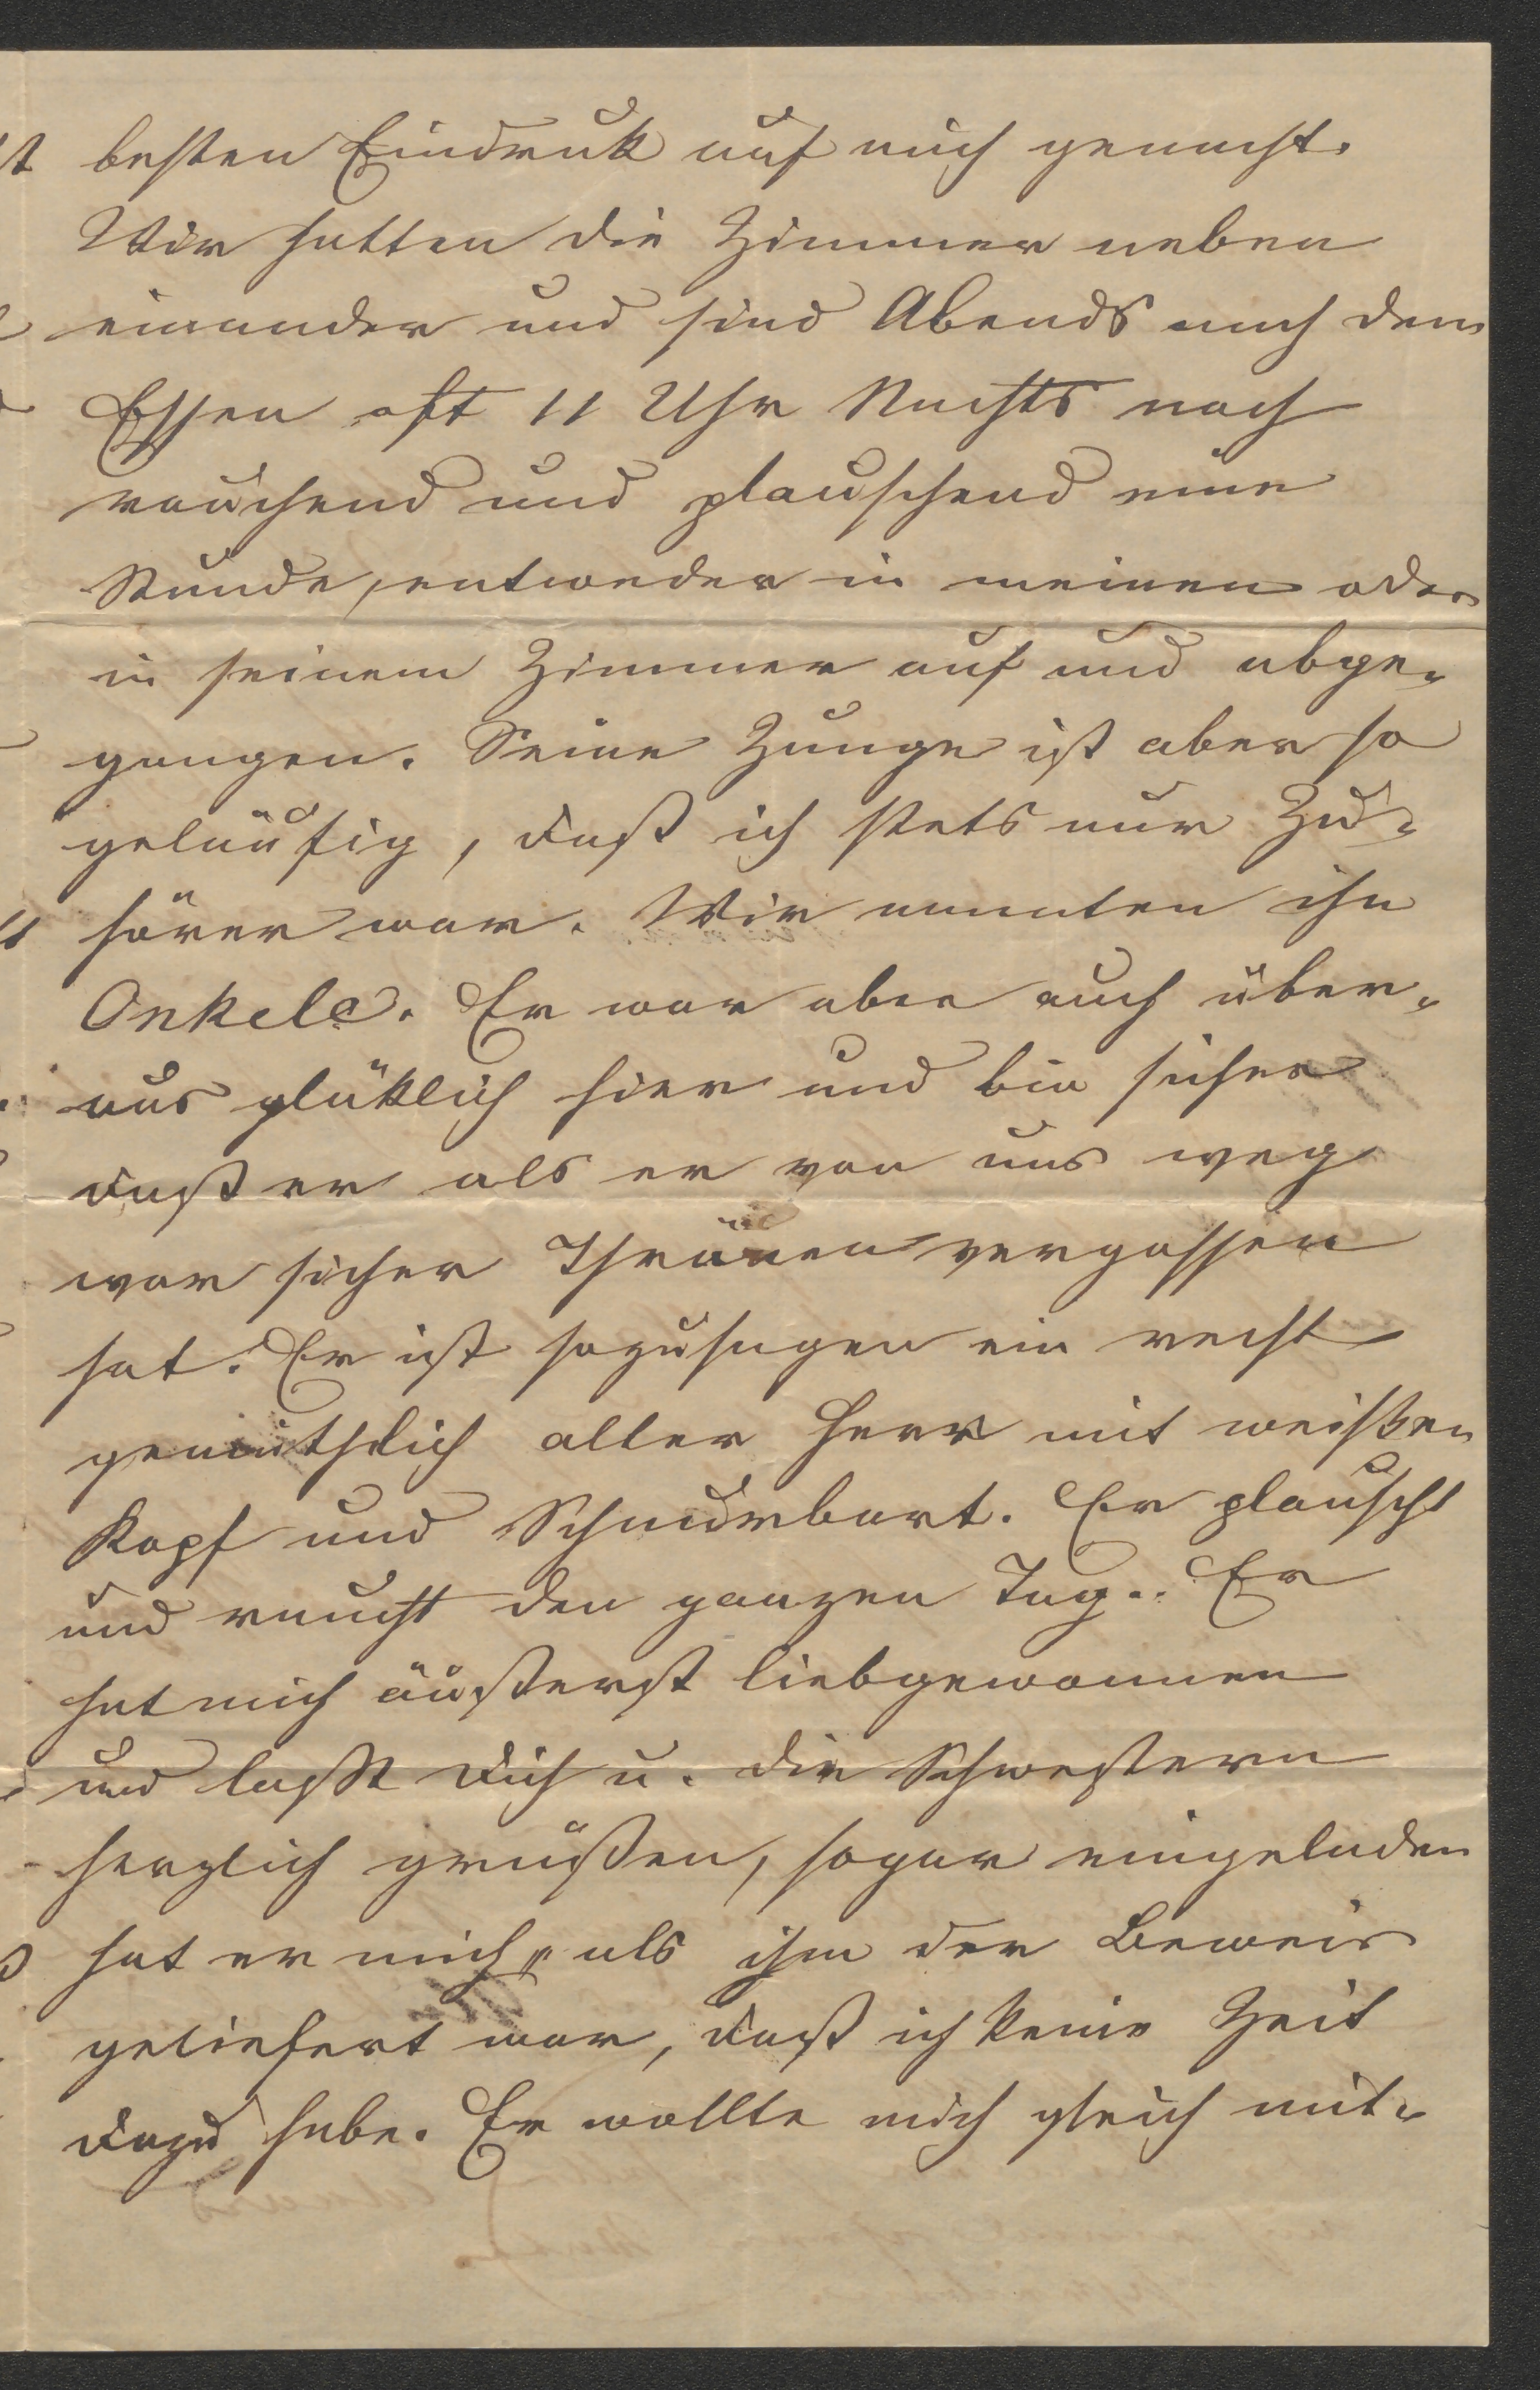 besten Eindruk auf mich gemacht.
Wir hatten die Zimmer neben
einander und sind Abends nach dem
Essen oft 11 Uhr Nachts noch
rauchend und plauschend eine
Stunde, entweder in meinem oder
in seinem Zimmer auf und abge-
gangen. Seine Zunge ist aber so
geläufig, daß ich stets nur Zu-
hörer war. Wir nannten ihn
Onkele. Er war aber auch über-
aus glüklich hier und bin sicher
daß er als er von uns weg
war sicher Thränen vergossen
hat. Er ist sozusagen ein recht
gemüthlich alter Herr mit weißen
Kopf und Schnurbart. Er plauscht
und raucht den ganzen Tag. Er
hat mich äußerst liebgewonnen
und laßt Dich u. die Schwestern
herzlich grüßen, sogar eingeladen
hat er mich, als ihm der Beweis
geliefert war, daß ich keine Zeit
dazu habe. Er wollte mich gleich mit-